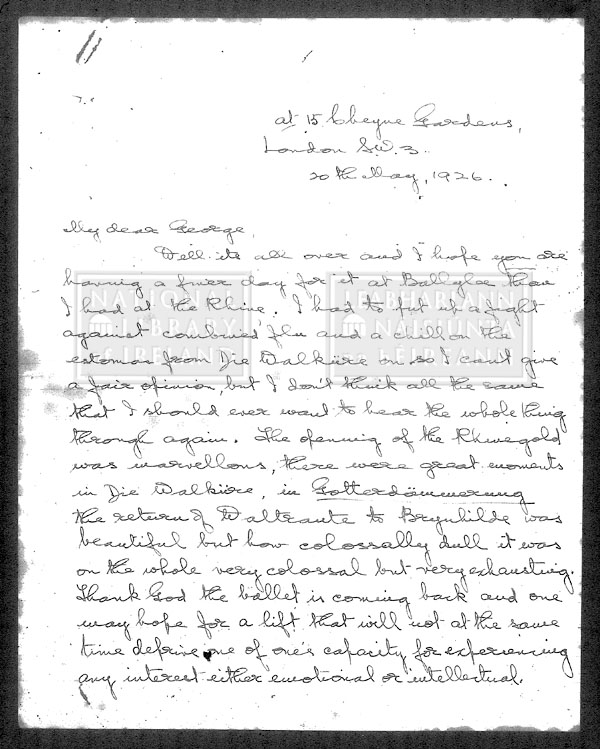 11
at 15 Cheyne Gardens,
London S.W. 3.
20th May, 1926.
My dear George,
Well its all over and I hope you are
having a finer day for it at Ballyglee than
I had at the Rhine. I had to put up a fight
against combined flu and a chill on the
estomac from Die Walküre on so I can't give
a fair opinion, but I don't think all the same
that I should ever want to hear the whole thing
through again. The opening of the Rhinegold
was marvellous, there were great moments
in Die Walküre, in Gotterdämmerung
the return of Waltraute to Brynhilde was
beautiful but how colossally dull it was
on the whole very colossal but very exhausting.
Thank God the ballet is coming back and one
may hope for a lift that will not at the same
time deprive one of one's capacity for experiencing
any interest either emotional or intellectual.
NATIONAL
LIBRARY
OF IRELAND
LEABHARLANN
NÁISIÚNTA
NA hÉIREANN